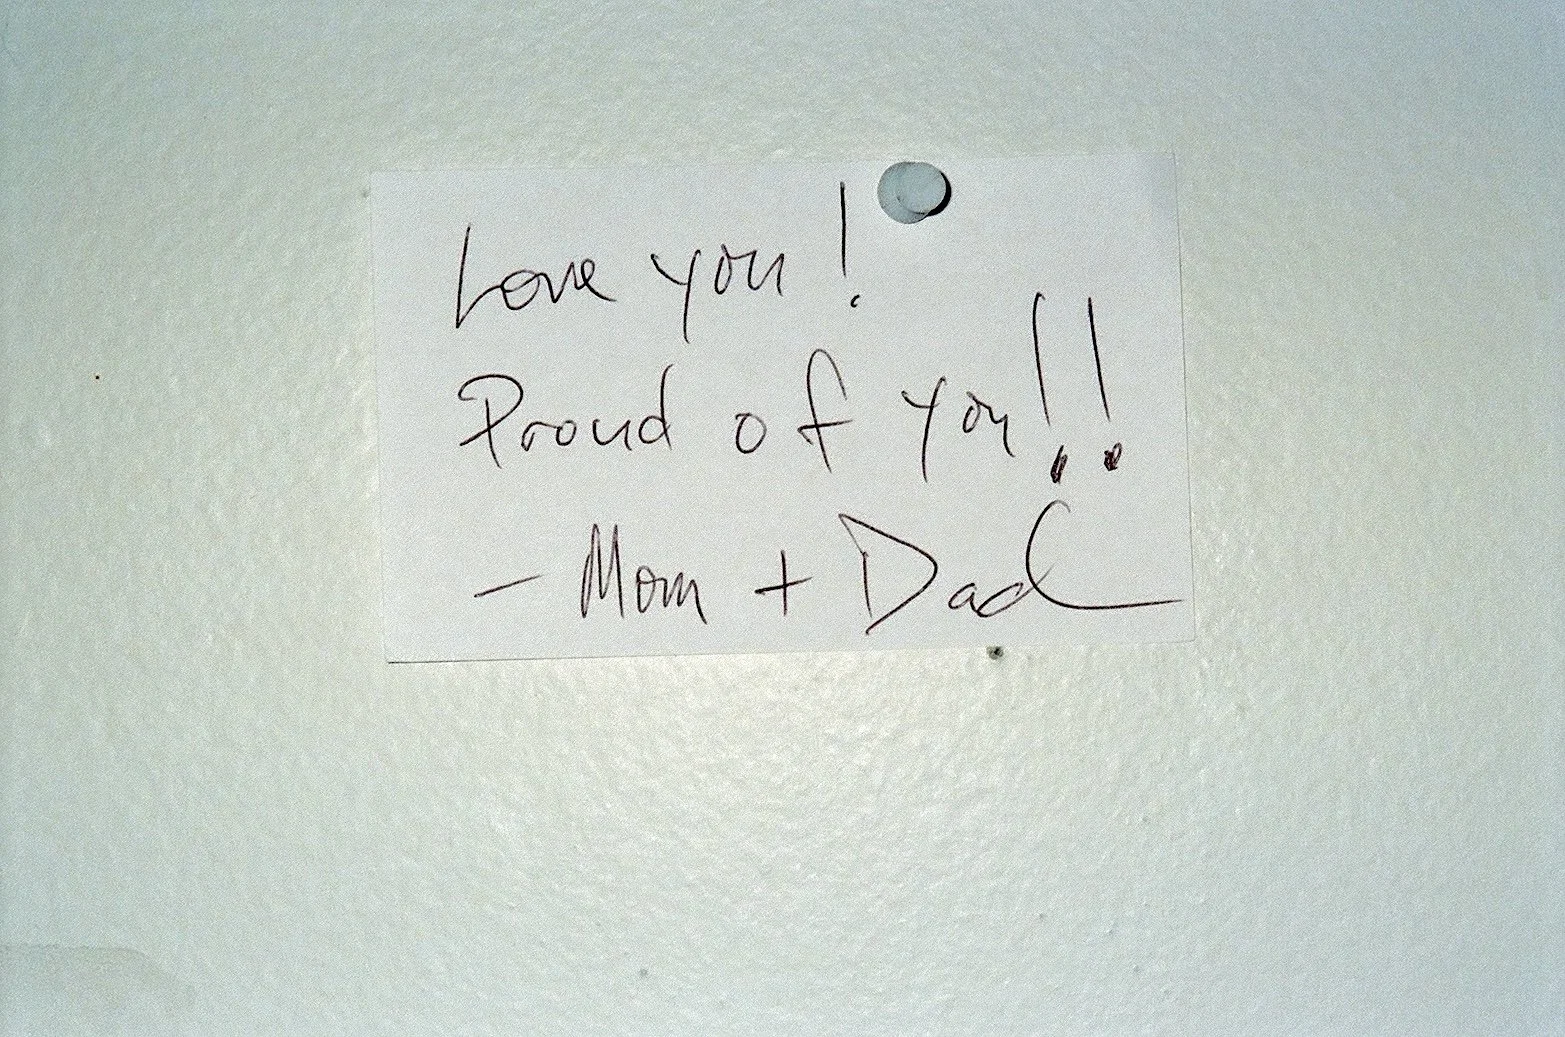 Love you!
Proud of you!!
- Mom + Dad